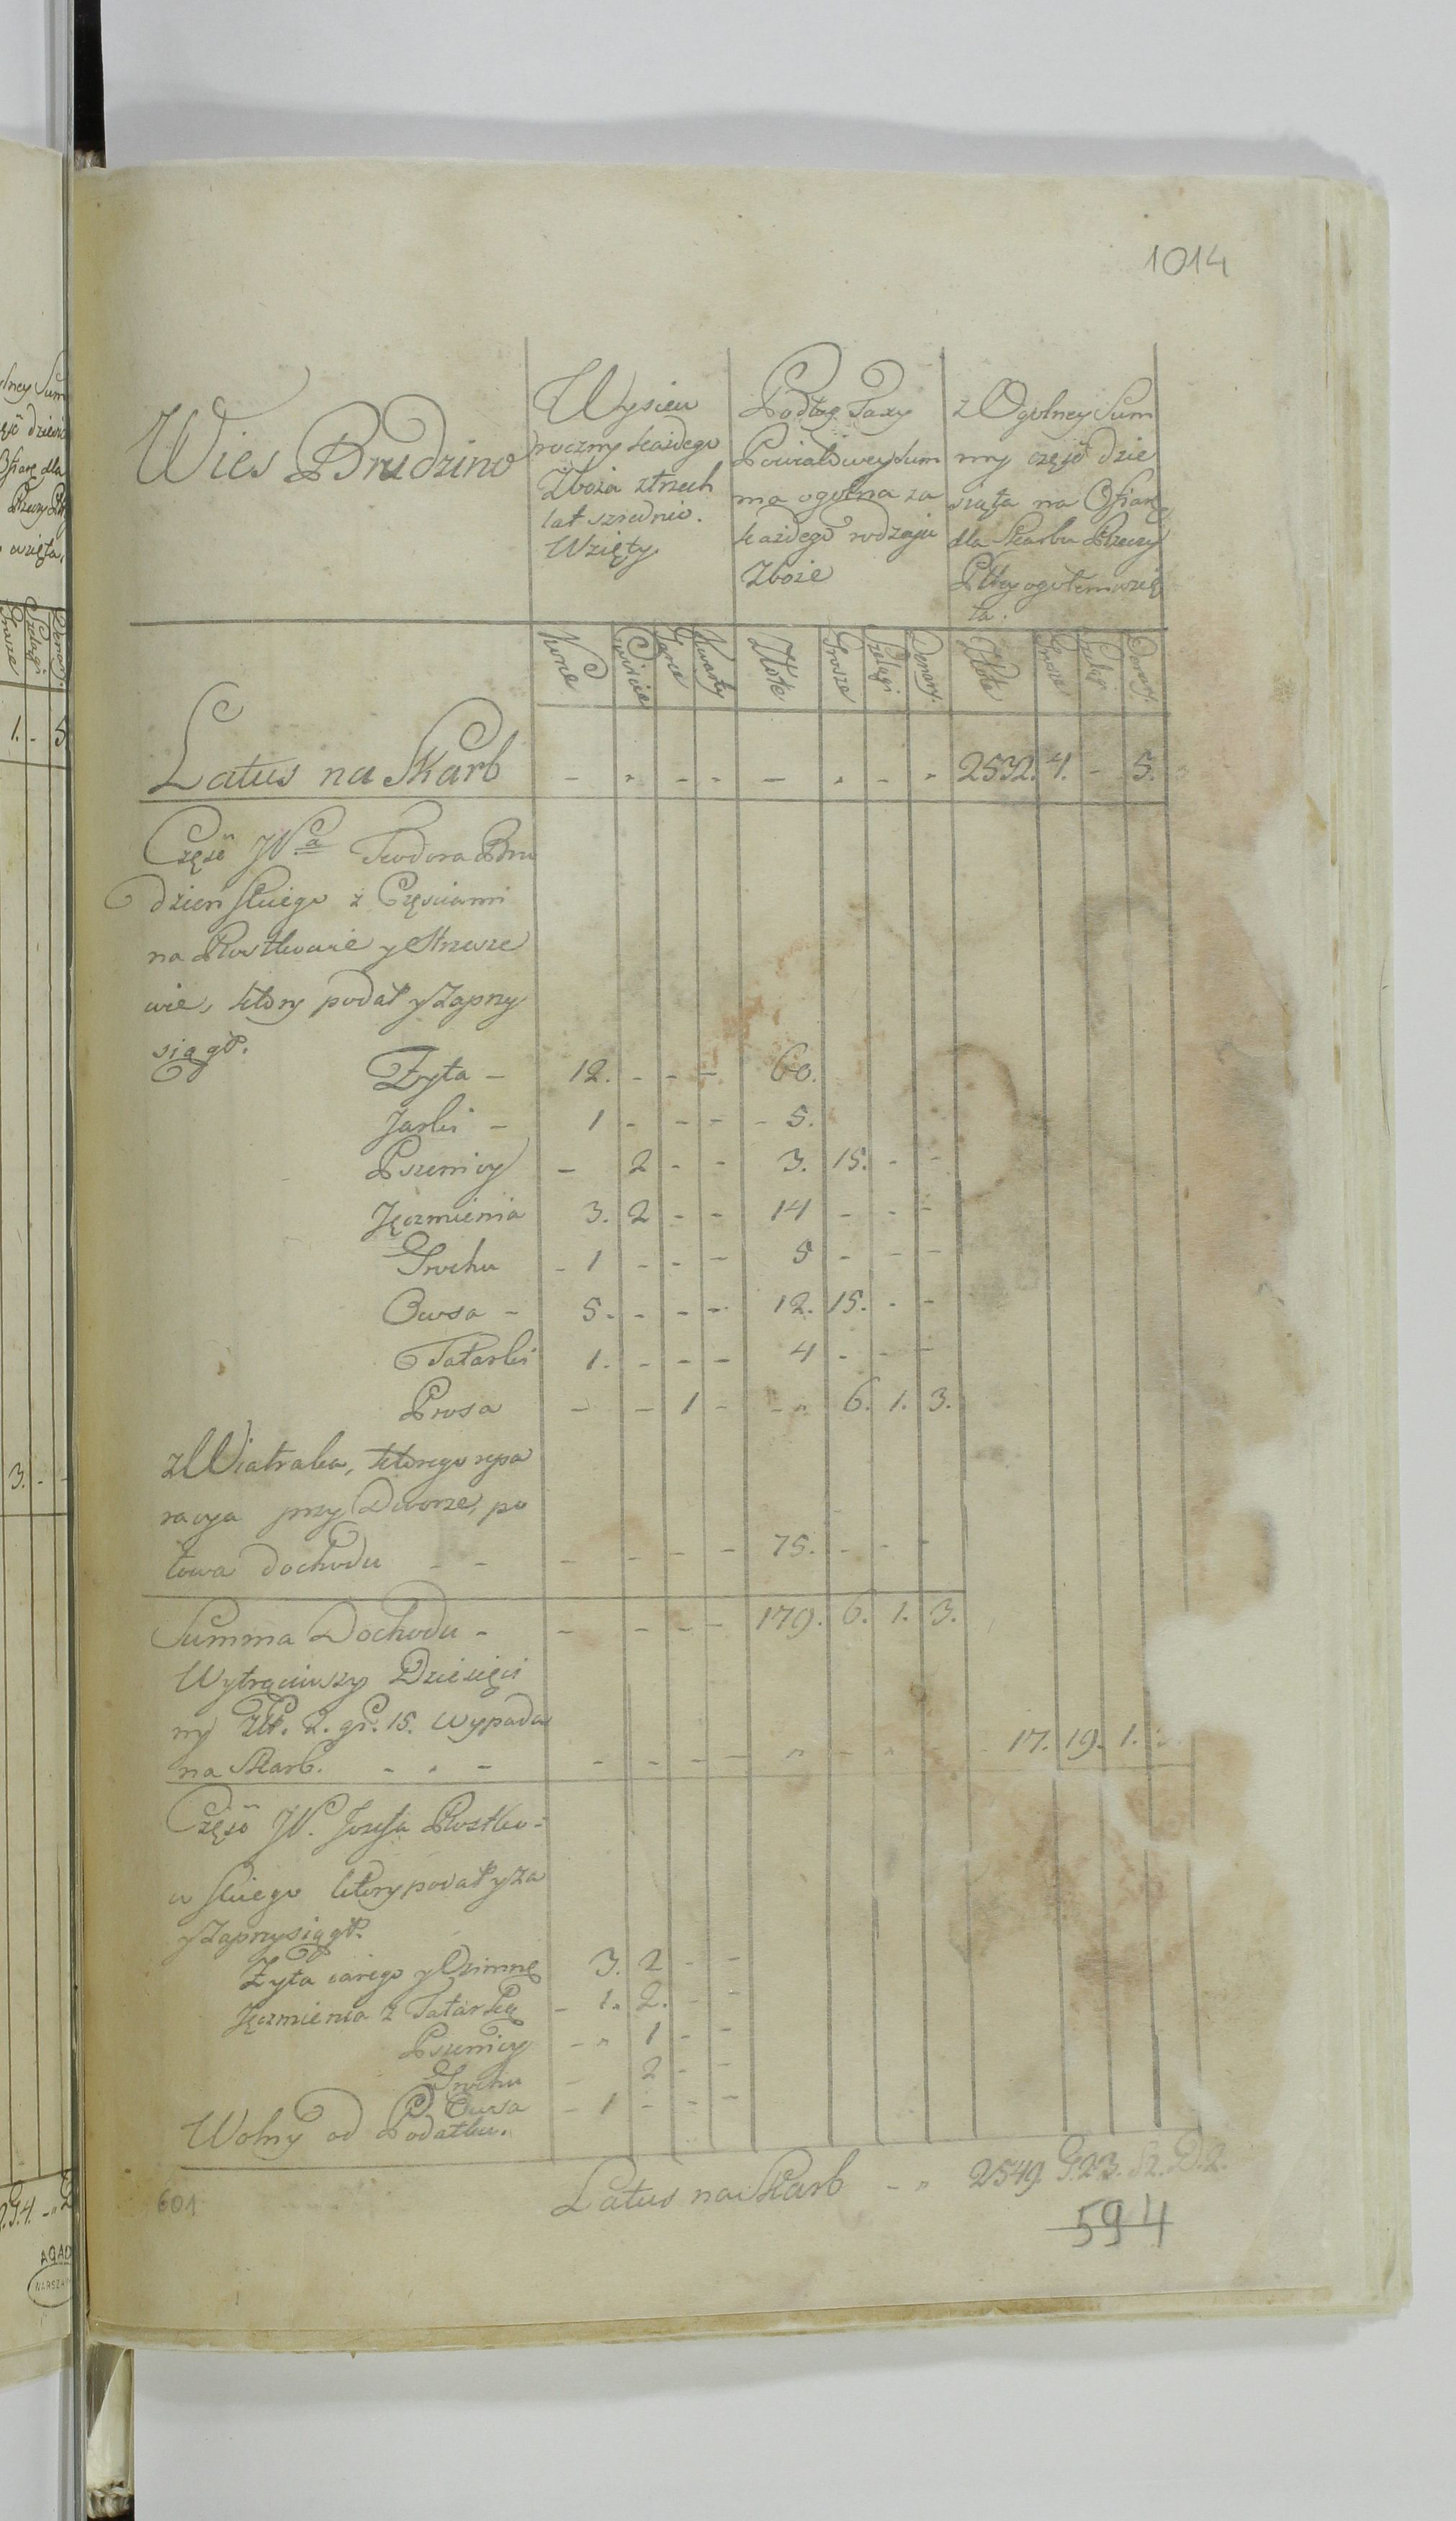 1014
Wies Brudzino
Wysiew
roczny każdego
Zboża ztrzech
lat szrednio.
Wzięty
Podług Taxy
Powiatowey Sum
ma ogolna za
każdego rodzaju
Zboże
z Ogolney Sum
my częsc dzie
siąta na Ofiarę
dla Skarbu Rzeczy
Pltey ogułem wzię
ta.
Korce Cwiercie Garce Kwarty Złote Grosze Szelągi Denary. Złote Grosze Szelągi Denary.
Latus na Skarb - " - - - " - " 2532. 4. - 5.
Częsc JP.a Teodora Bru
dzienskiego z Częsciami
na Rostkowie y Strzesze
wie, ktory podał y Zaprzy
siągł.
Zyta - 12. - - - 60.
Jarki - 1 - - - - 5.
Pszenicy - 2 - - 3. 15. - -
Jęczmienia 3. 2 - - 14 - - -
Grochu - 1 - - - 5 - - -
Owsa - 5. - - - 12. 15. - -
Tatarki 1. - - - 4 - - -
Prosa - - 1 - - " 6. 1. 3.
z Wiatraka, ktorego repa
racya przy Dworze, po
łowa dochodu - - - - - - 75. - - -
Summa Dochodu - - - - - 179. 6. 1. 3.
Wytrąciwszy Dziesięci
ny Złł. 2. gr. 15. wypada
na Skarb. - " - - - - - " - " - 17. 19. 1.
Częsc JP. Jozefa Rostko-
wskiego ktory podał y za
y Zaprzysiągł.
Zyta iarego y Ozimnę 3. 2 - -
Jęczmienia z Tatarką - 1. 2. - -
Pszenicy - " 1 - -
Grochu - 2 - -
Owsa - 1 - - -
Wolny od Podatku.
Latus na Skarb - " 2549. G. 23. Sz. D. 2.
601
594